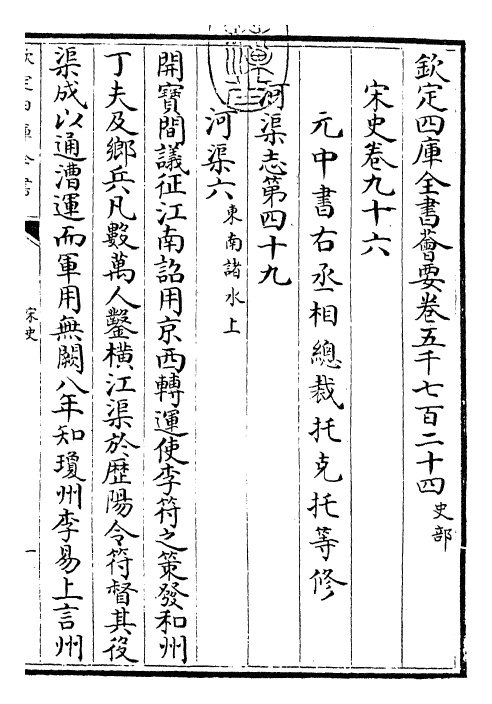 欽定四庫全書薈要卷五千七百二十四 史部
宋史卷九十六
元中書右丞相總裁托克托等修
河渠志第四十九
河渠六 東南諸水上
開寶間議征江南詔用京西轉運使李符之策發和州
丁夫及鄉兵凡數萬人鑿橫江渠於歴陽令符督其役
渠成以通漕運而軍用無闕八年知瓊州李易上言州
欽定四庫全書
宋史
一